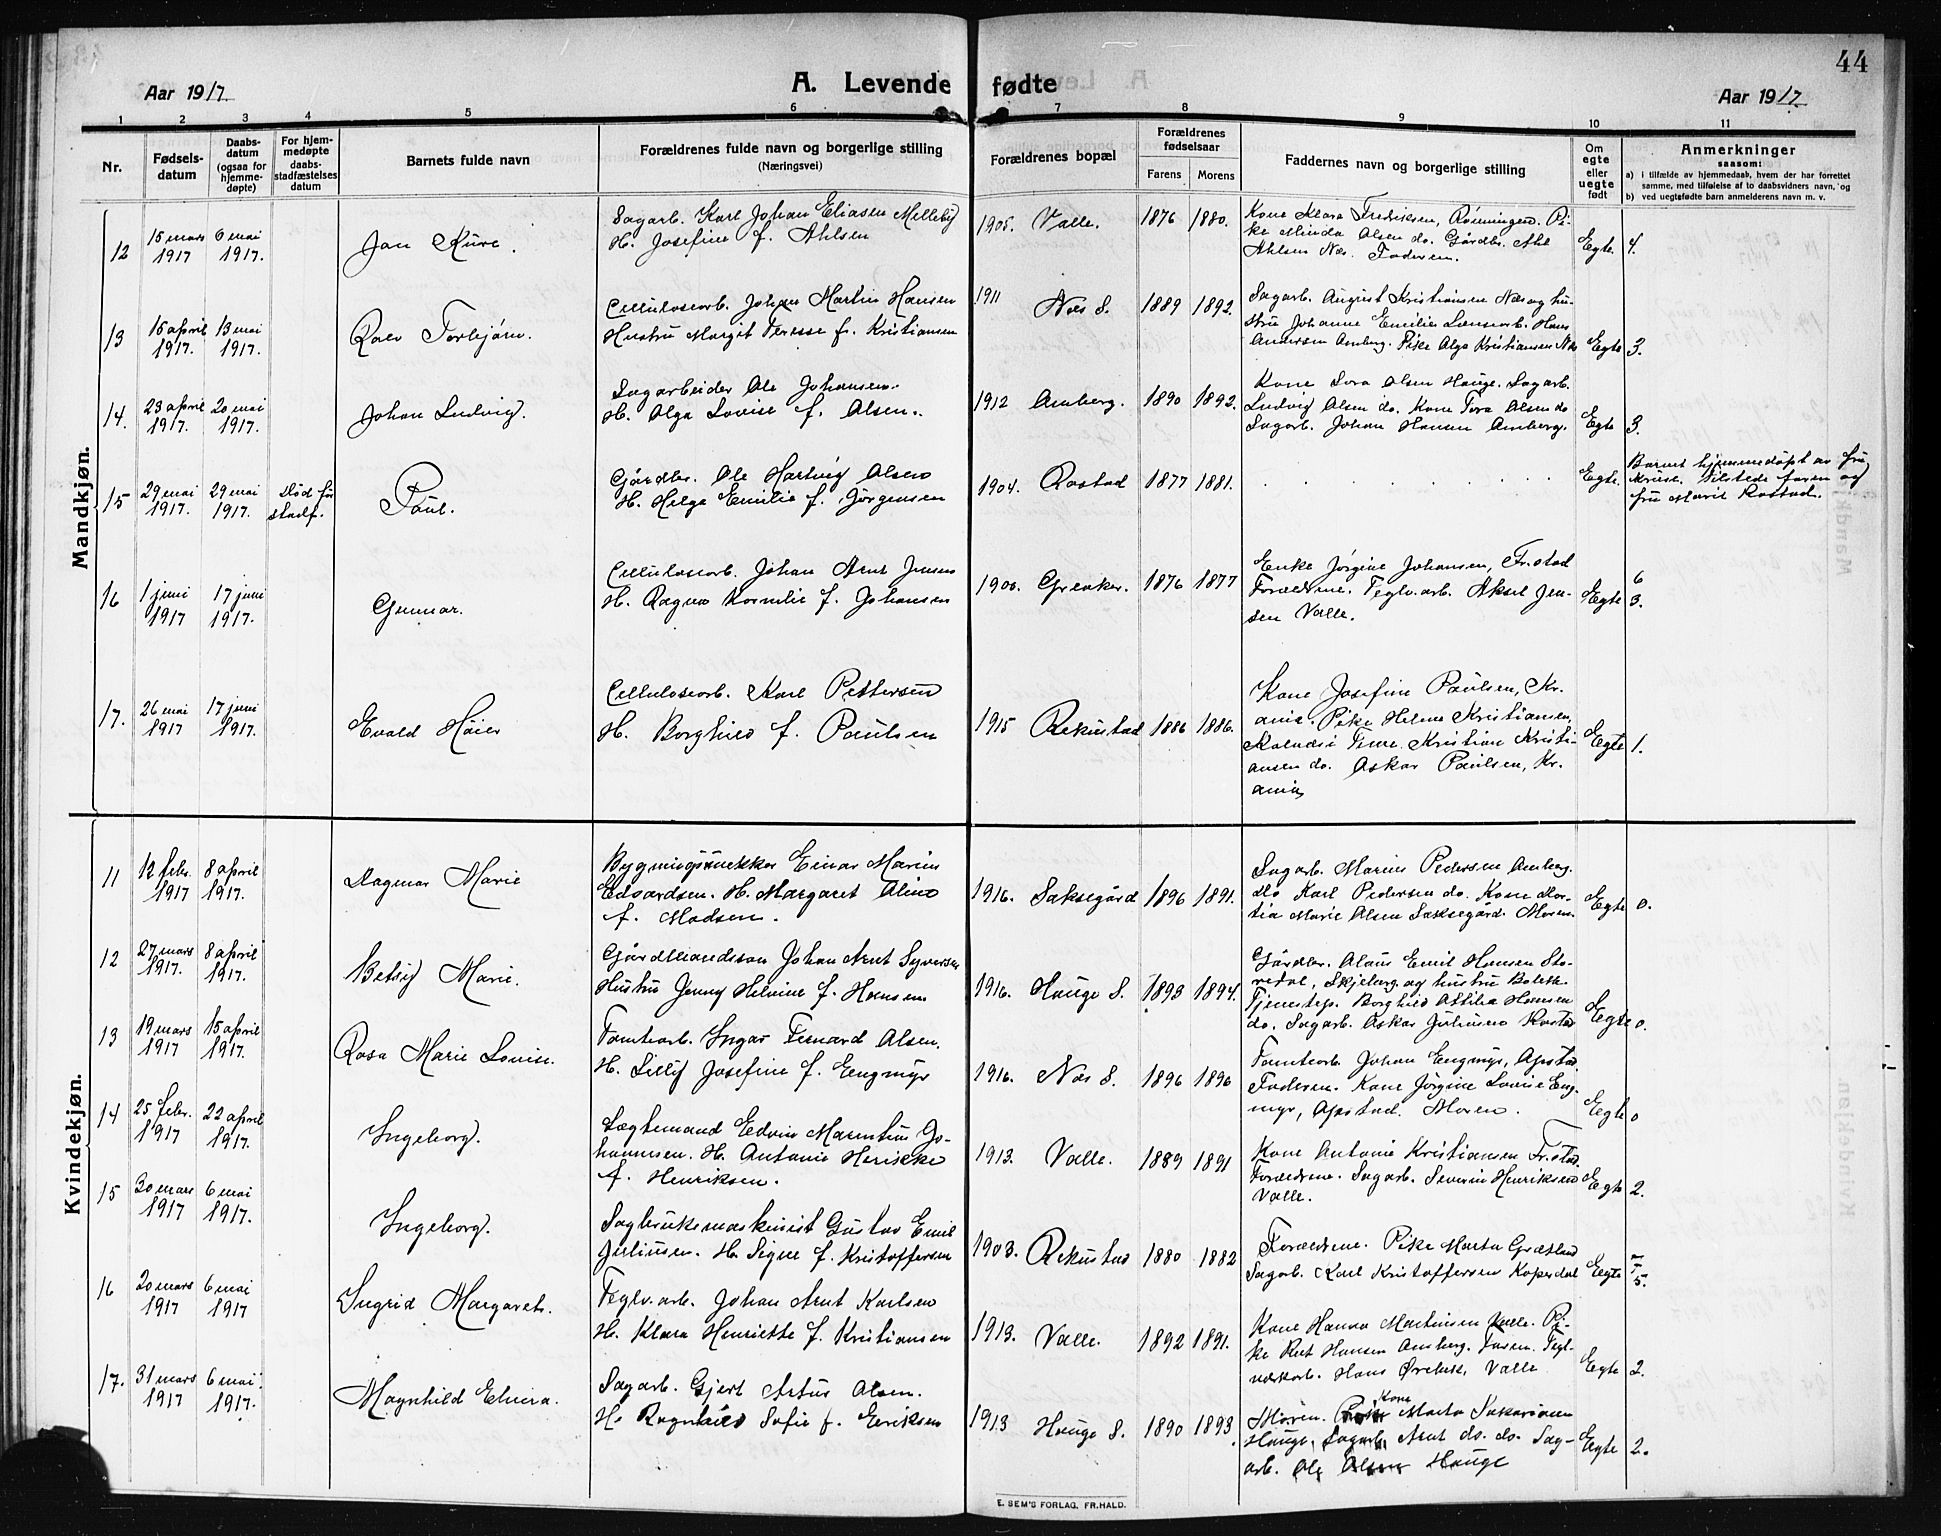 44
Aar 1917
A. Levende fødte
Aar 1917
1 2 3 4 5 6 7 8 9 10 11
Nr.
Fødsels-
datum
Daabs-
datum
(ogsaa for
hjemme-
døpte)
For hjem-
medøpte
daabs-
stadfæstelses
datum
Barnets fulde navn
Forældrenes fulde navn og borgerlige stilling
(Næringsvei)
Forældrenes bopæl
Forældrenes
fødselsaar
Farens Morens
Faddernes navn og borgerlige stilling
Om
egte
eller
uegte
født
Anmerkninger
saasom:
a) i tilfælde av hjemmedaab, hvem der har forrettet
samme, med tilføielse af to daabsvidners navn, og
b) ved uegtefødte barn anmelderens navn m. v.
Mandkjøn.
12
15 mars 1917
6 mai 1917.
Jan Kure.
Sagarb. Karl Johan Eliasen Melleby
H. Josefine f. Ahlsen
1905. Valle.
1876 1880.
Kone Klara Fredriksen, Rønningen. Pi-
ke Minda Olsen do. Gårdbr.
Ahlsen Næs. Faderen.
Egte 4.
13
15 april 1917.
13 mai 1917.
Rolv Torbjørn.
Cellulosearb. Johan Martin Hansen
Hustru Margit Teresse f. Kristiansen
1911 Næs S.
1889 1892.
Sagarb. August Kristiansen Næs og hu-
stru Johanne Emilie Lensearb. Hans
Andersen Amberg. Pike Olga Kristiansen Næs
Egte 3.
14.
23 april 1917.
20 mai 1917.
Johan Ludvig.
Sagarbeider Ole Johansen.
H. Olga Lovise f. Olsen.
1912 Amberg.
1890 1892.
Kone Sora Olsen Hauge. Sagarb.
Ludvig Olsen do. Kone Tora Olsen do
Sagarb. Johan Hansen Amberg.
Egte 3.
15
29 mai 1917.
29 mai 1917.
Død før
stadf.
Paul.
Gårdbr. Ole Hartvig Olsen
H. Helga Emilie f. Jørgensen
1904. Rostad
1877 1881.
Egte.
Barnet hjemmedøpt av fru
Kruse. Tilstede faren og
fru Marie Rostad.
16
1 juni 1917
17 juni 1917.
Gunnar.
Cellulosearb. Johan Arnt Jensen
H. Ragna Kornelie f. Johansen
1900. Greaker.
1876 1877
Enke Jørgine Johansen, Fr.stad
Forældrene. Teglv.arb. Aksel Jen-
sen Valle.
Egte 6
3.
17.
26 mai 1917
17 juni 1917.
Evald Høier
Cellulosearb. Karl Pettersen
H. Borghild f. Paulsen
1915 Rekustad
1886 1886.
Kone Josefine Paulsen, Kr.
ania. Pike Helene Kristiansen,
Kristian Kristi-
ansen do. Oskar Paulsen, Kr.
ania
Egte 1.
Kvindekjøn.
11
12 febr. 1917
8 april 1917.
Dagmar Marie
Bygningssnekker Einar Marius
Edvardsen. H. Margaret Oline
f. Madsen.
1916. Saksegård
1896 1891.
Sagarb. Marius Pedersen Amberg.
do Karl Pedersen do. Kone Mar-
tia Marie Olsen Saksegård. Moren.
Egte 0.
12
27 mars 1917.
8 april 1917.
Betsy Marie.
Gårdmandssøn Johan Arnt Syversen
Hustru Jenny Helvine f. Hansen
1916. Hauge S.
1893 1894.
Gårdbr. Olaus Emil Hansen Sto-
redal, Skjeberg og hustru Bolette
Tjenestep. Borghild Attilia Hansen
do. Sagarb. Oskar Juliussen Rostad
Egte 0.
13
19 mars 1917
15 april 1917.
Rosa Marie Lovise.
Tomtearb. Ingar Fernard Olsen.
H. Lilly Josefine f. Engmyr
1916. Næs S.
1896 1896
Tomtearb Johan Engmyr, Opstad
Faderen. Kone Jørgine Lovise Eng-
myr, Opstad. Moren.
Egte 0
14
25 febr. 1917
22 april 1917.
Ingeborg.
Lægtemand Edvin Marentius Jo-
hannesen. H. Antonie Henrikke
f. Henriksen.
1913. Valle.
1889 1891
Kone Antonie Kristiansen Fr.stad.
Forældrene. Sagarb. Severin Henriksen
Valle.
Egte 2.
15
30 mars 1917
6 mai 1917.
Ingeborg.
Sagbruksmaskinist Gustav Emil
Juliussen. H. Signe f. Kristoffersen
1903. Rekustad
1880 1882
Forældrene. Pike Marta Grætland
Sagarb. Karl Kristoffersen Kopsdal
Egte 5.
16
20 mars 1917
6 mai 1917
Ingrid Margaret.
Teglv.arb. Johan Arnt Karlsen
H. Klara Henriette f. Kristiansen
1913. Valle.
1892 1891.
Kone Hanna Martinsen Valle. Pi-
ke Rut Hansen Amberg. Faren. Tegl-
verksarb. Hans Ørebek, Valle
Egte 2.
17.
31 mars 1917
6 mai 1917.
Magnhild Elvira.
Sagarb. Gjert Artur Olsen.
H. Ragnhild Sofie f. Eriksen
1913 Hauge S.
1890 1893.
Moren. Kone Marta Sakariasen
Hauge, Sagarb. Arnt do. do. Sag-
arb. Ole Olsen Hauge
Egte 2.
E. SEM'S FORLAG, FR.HALD.